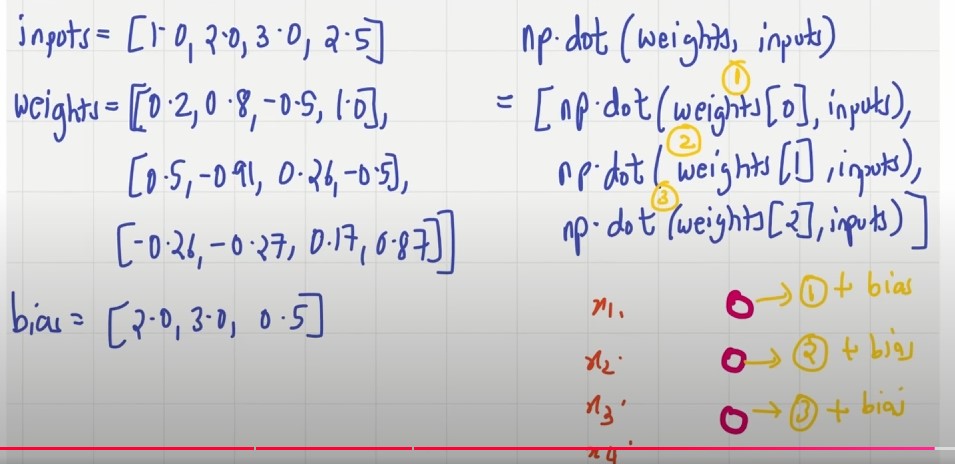 inputs = [1.0, 2.0, 3.0, 2.5]
weights = [[0.2, 0.8, -0.5, 1.0],
[0.5, -0.91, 0.26, -0.5],
[-0.26, -0.27, 0.17, 0.87]]
bias = [2.0, 3.0, 0.5]
np.dot (weights, inputs)
①
= [np.dot (weights[0], inputs),
②
np.dot ( weights [1] , inputs),
③
np.dot (weights[2], inputs) ]
x1. → ① + bias
x2. → ② + bias
x3. → ③ + bias
x4.